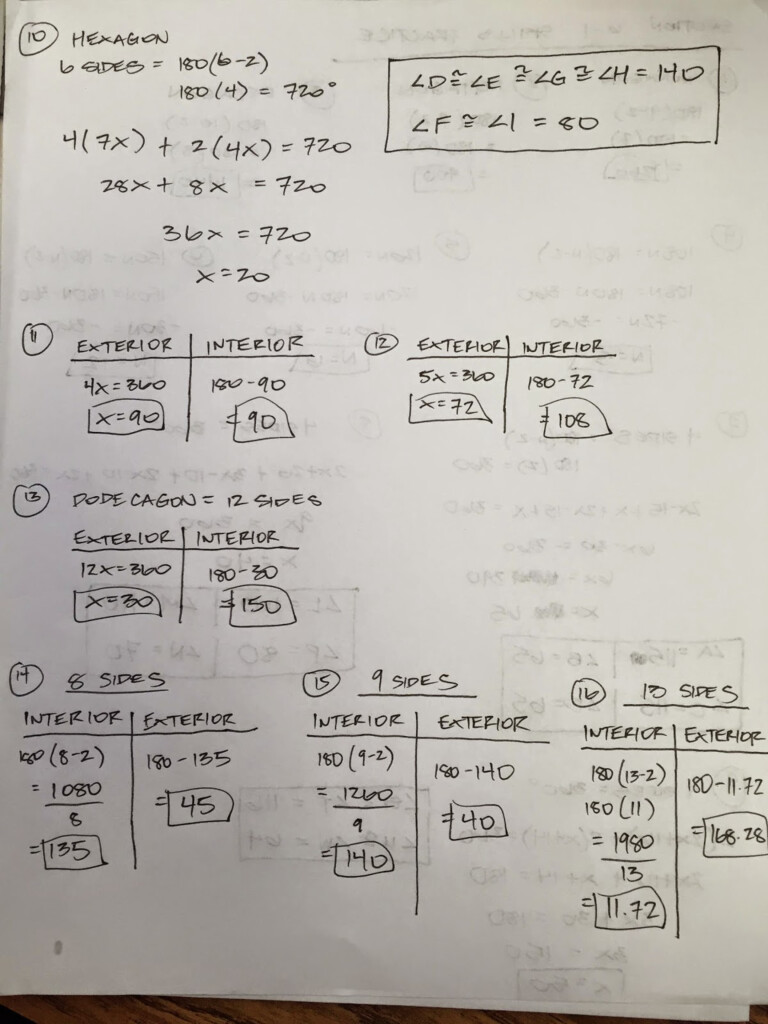 10 HEXAGON
6 SIDES = 180(6-2)
180(4) = 720°
4(7x) + 2(4x) = 720
28x + 8x = 720
36x = 720
x = 20
∠D ≅ ∠E ≅ ∠G ≅ ∠H = 140
∠F ≅ ∠I = 80
11 EXTERIOR | INTERIOR
4x = 360 | 180-90
x = 90 | = 90
12 EXTERIOR | INTERIOR
5x = 360 | 180-72
x = 72 | = 108
13 DODECAGON = 12 SIDES
EXTERIOR | INTERIOR
12x = 360 | 180-30
x = 30 | = 150
14 8 SIDES
INTERIOR | EXTERIOR
180(8-2) | 180-135
= 1080
8
= 135 | = 45
15 9 SIDES
INTERIOR | EXTERIOR
180(9-2) | 180-140
= 1260
9
= 140 | = 40
16 13 SIDES
INTERIOR | EXTERIOR
180(13-2) | 180-11.72
180(11) | = 168.28
= 1980
13
= 11.72